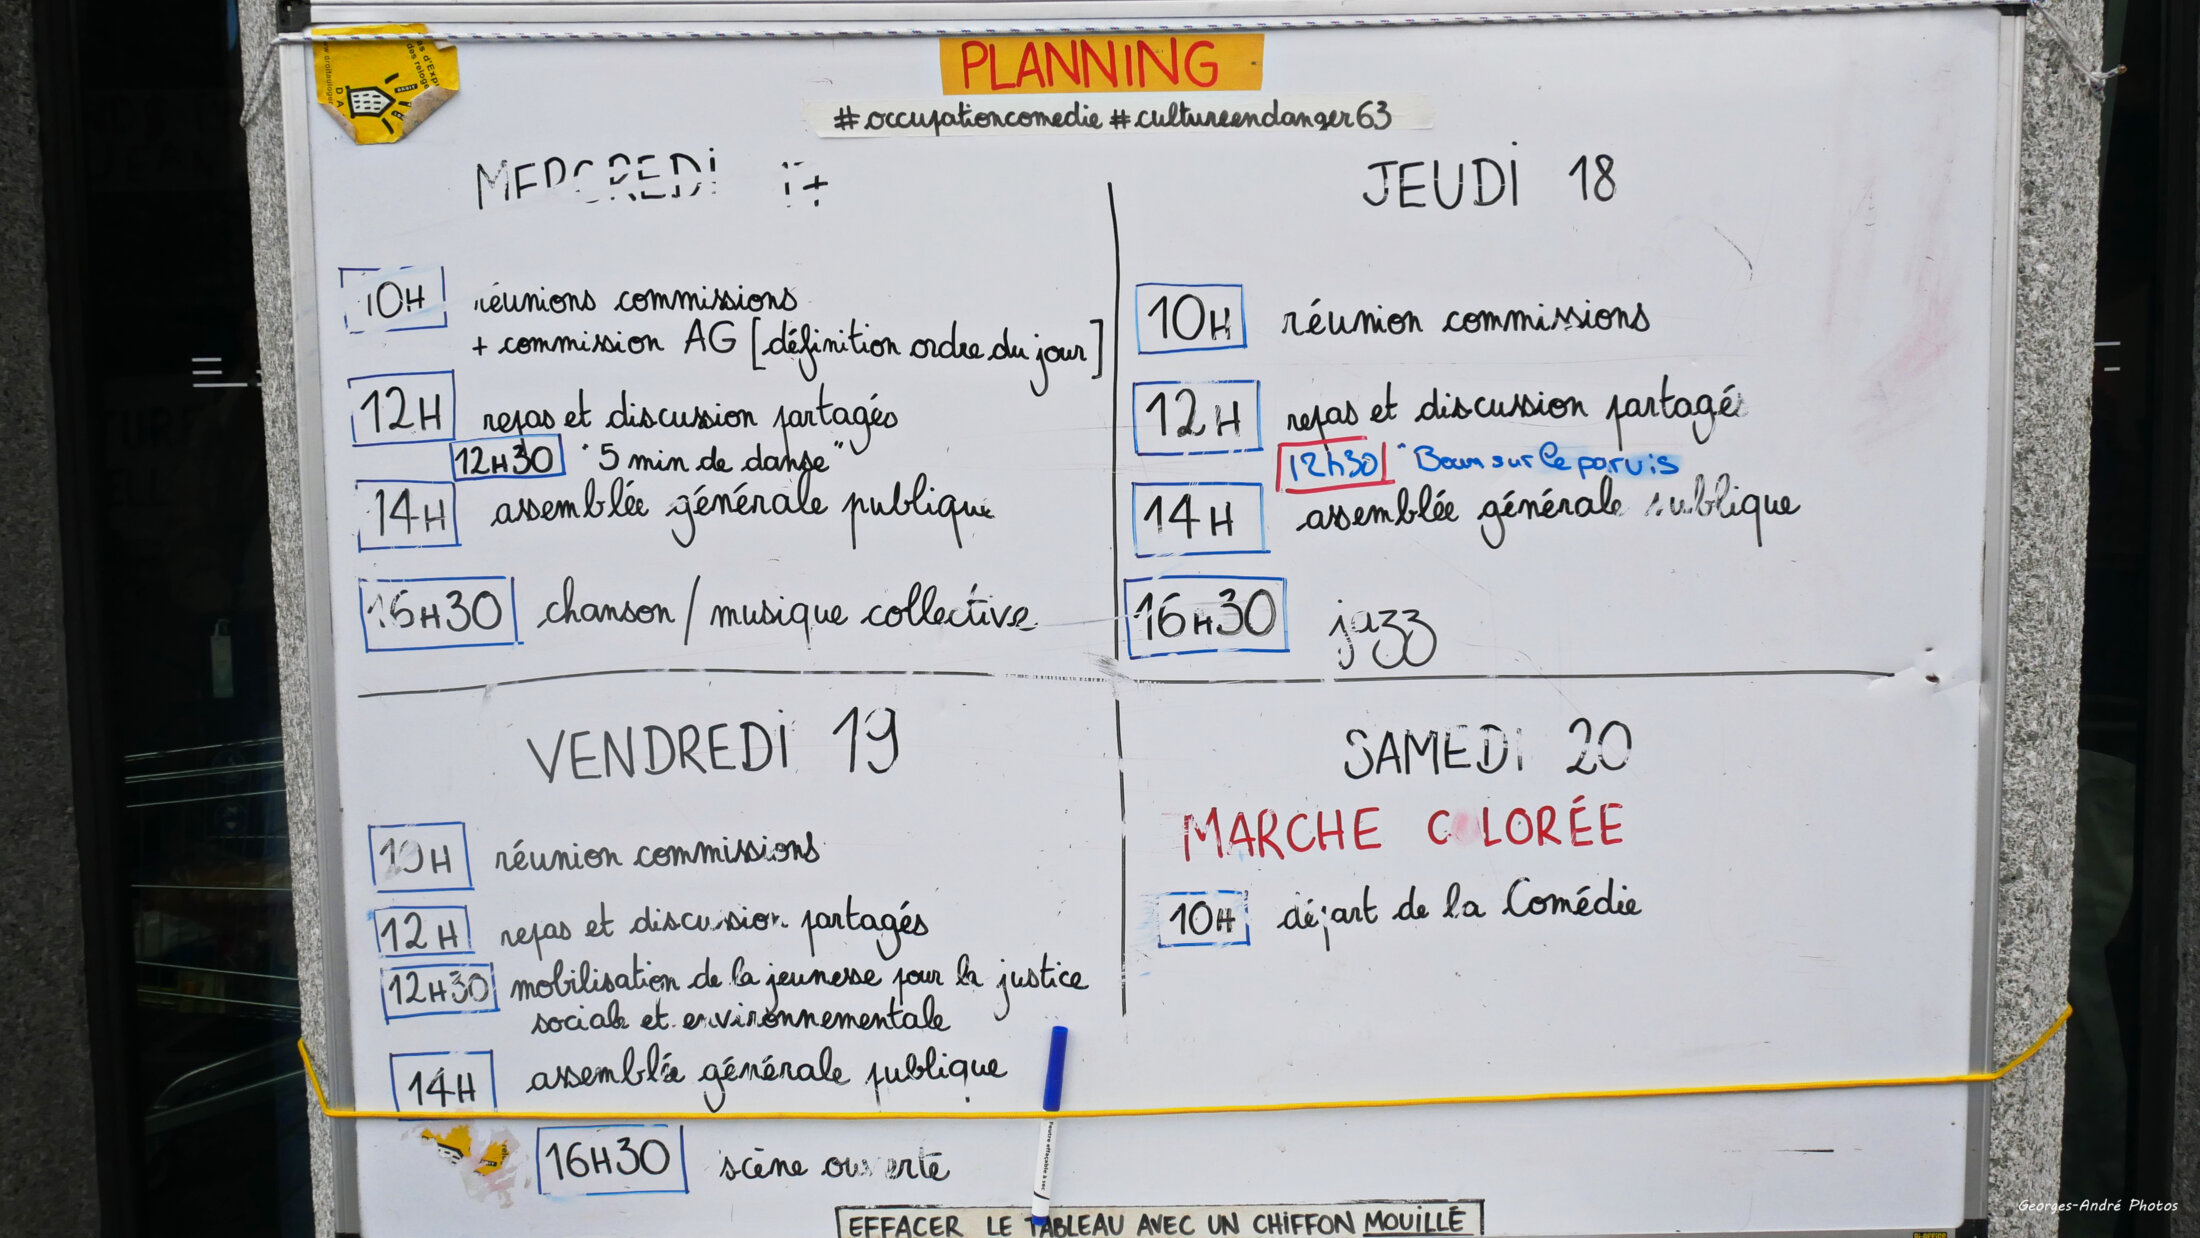 PLANNING
#occupationcomedie #cultureendanger63
MERCREDI 17
10H réunions commissions
+ commission AG [définition ordre du jour]
12H repas et discussion partagés
12H30 "5 min de danse"
14H assemblée générale publique
16H30 chanson / musique collective
JEUDI 18
10H réunion commissions
12H repas et discussion partagé
12h30 "Boum sur le parvis
14H assemblée générale publique
16H30 jazz
VENDREDI 19
10H réunion commissions
12H repas et discussion partagés
12H30 mobilisation de la jeunesse pour la justice
sociale et environnementale
14H assemblée générale publique
16H30 scène ouverte
SAMEDI 20
MARCHE COLORÉE
10H départ de la Comédie
EFFACER LE TABLEAU AVEC UN CHIFFON MOUILLÉ
Georges-André Photos